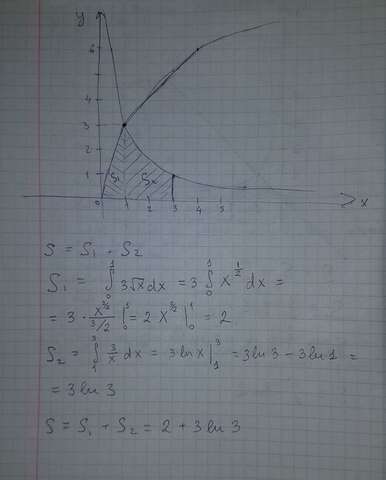 y
6
4
3
2
1
S₁ S₂
0 1 2 3 4 5 x
S = S₁ + S₂
S₁ = ∫₀¹ 3√x dx = 3 ∫₀¹ x^(1/2) dx =
= 3 · x^(3/2)/(3/2) |₀¹ = 2 x^(3/2) |₀¹ = 2
S₂ = ∫₁³ 3/x dx = 3 ln x |₁³ = 3 ln 3 − 3 ln 1 =
= 3 ln 3
S = S₁ + S₂ = 2 + 3 ln 3